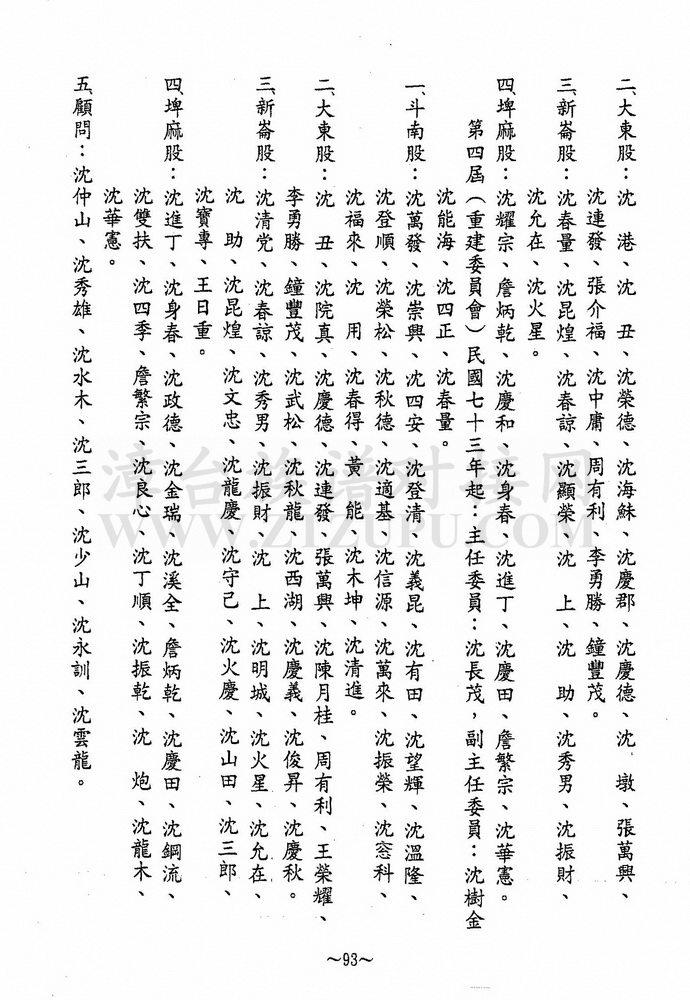 二、大東股：沈　港、沈　丑、沈榮德、沈海鮇、沈慶郡、沈慶德、沈　墩、張萬興、
沈連發、張介福、沈中庸、周有利、李勇勝、鐘豐茂。
三、新崙股：沈春量、沈昆煌、沈春諒、沈顯榮、沈　上、沈　助、沈秀男、沈振財、
沈允在、沈火星。
四、埤麻股：沈耀宗、詹炳乾、沈慶和、沈身春、沈進丁、沈慶田、詹繁宗、沈華憲。
第四屆（重建委員會）民國七十三年起：主任委員：沈長茂，副主任委員：沈樹金
沈能海、沈四正、沈春量。
一、斗南股：沈萬發、沈崇興、沈四安、沈登清、沈義昆、沈有田、沈望輝、沈溫隆、
沈登順、沈榮松、沈秋德、沈適基、沈信源、沈萬來、沈振榮、沈窓科、
沈福來、沈　用、沈春得、黃　能、沈木坤、沈清進。
二、大東股：沈　丑、沈院真、沈慶德、沈連發、張萬興、沈陳月桂、周有利、王榮耀、
李勇勝、鐘豐茂、沈武松、沈秋龍、沈西湖、沈慶義、沈俊昇、沈慶秋。
三、新崙股：沈清党、沈春諒、沈秀男、沈振財、沈　上、沈明城、沈火星、沈允在、
沈　助、沈昆煌、沈文忠、沈龍慶、沈守己、沈火慶、沈山田、沈三郎、
沈寶專、王日重。
四、埤麻股：沈進丁、沈身春、沈政德、沈金瑞、沈溪全、詹炳乾、沈慶田、沈鋼流、
沈雙扶、沈四季、詹繁宗、沈良心、沈丁順、沈振乾、沈　炮、沈龍木、
沈華憲。
五、顧問：沈仲山、沈秀雄、沈水木、沈三郎、沈少山、沈永訓、沈雲龍。
～93～
漳台族譜对接网
WWW.ZTZUPU.COM